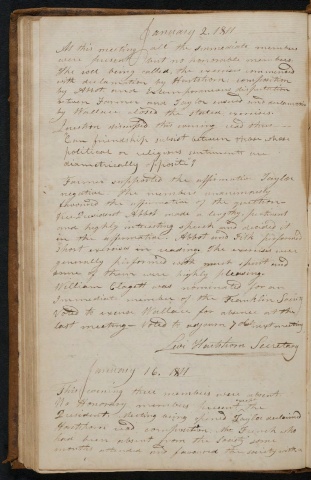 January 2. 1811
At this meeting all the immediate members
were present, but no honorable members.
The roll being called, the exercises commenced
with declamation by Hartshorn, composition
by Abbot and Extemporaneous disputation
between Farmer and Taylor and declamation
by Wallace closed the stated exercises.
Question discussed this evening was this
Can friendship subsist between those whose
political or religious sentiments are
diametrically opposite?
Farmer supported the affirmative Taylor
negative. The members unanimously
favored the affirmative of the question
President Abbot made a lengthy pertinent
and highly interesting speech and decided it
in the affirmative. Abbot and Fitch performed
short exercises in reading. The exercises were
generally performed with much spirit and
some of them were highly pleasing.
William Clagett was nominated for an
Immediate member of the Franklin Society
Voted to excuse Wallace for absence at the
last meeting. Voted to adjourn 7 next meeting
Levi Hartshorn Secretary
January 16. 1811
This evening three members were absent
No Honorary members present. The
President being Taylor declaimed
Hartshorn read composition. Mr. French who
had been absent from the Society some
months attended and favored the society with